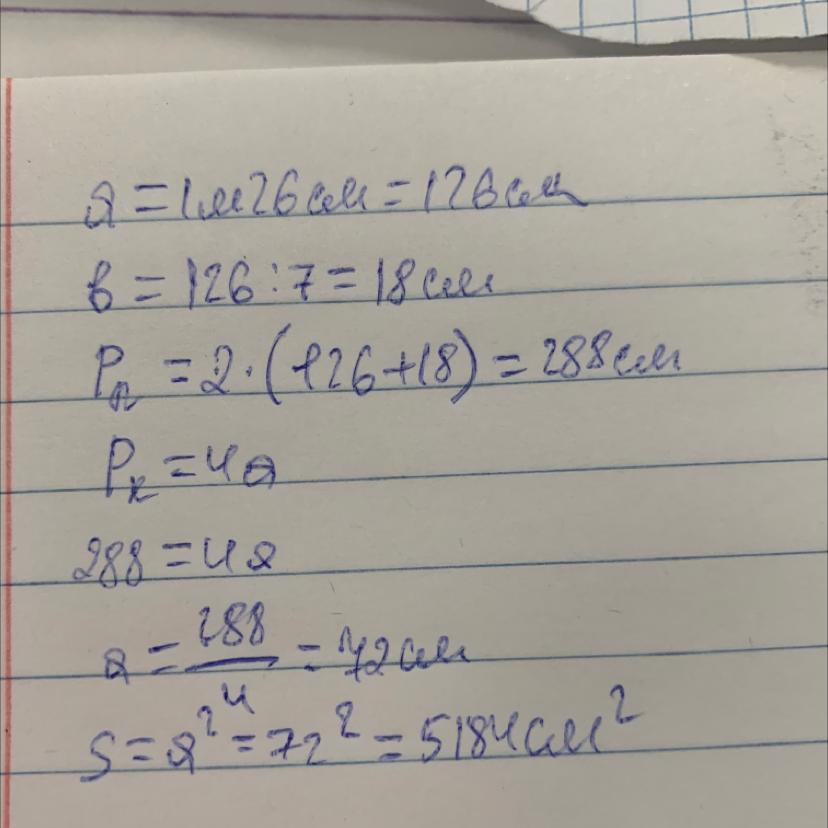 a = 1м26см = 126см
в = 126 : 7 = 18см
Pп = 2·(126+18) = 288см
Pк = 4a
288 = 4a
a = 288/4 = 72см
S = a² = 72² = 5184см²